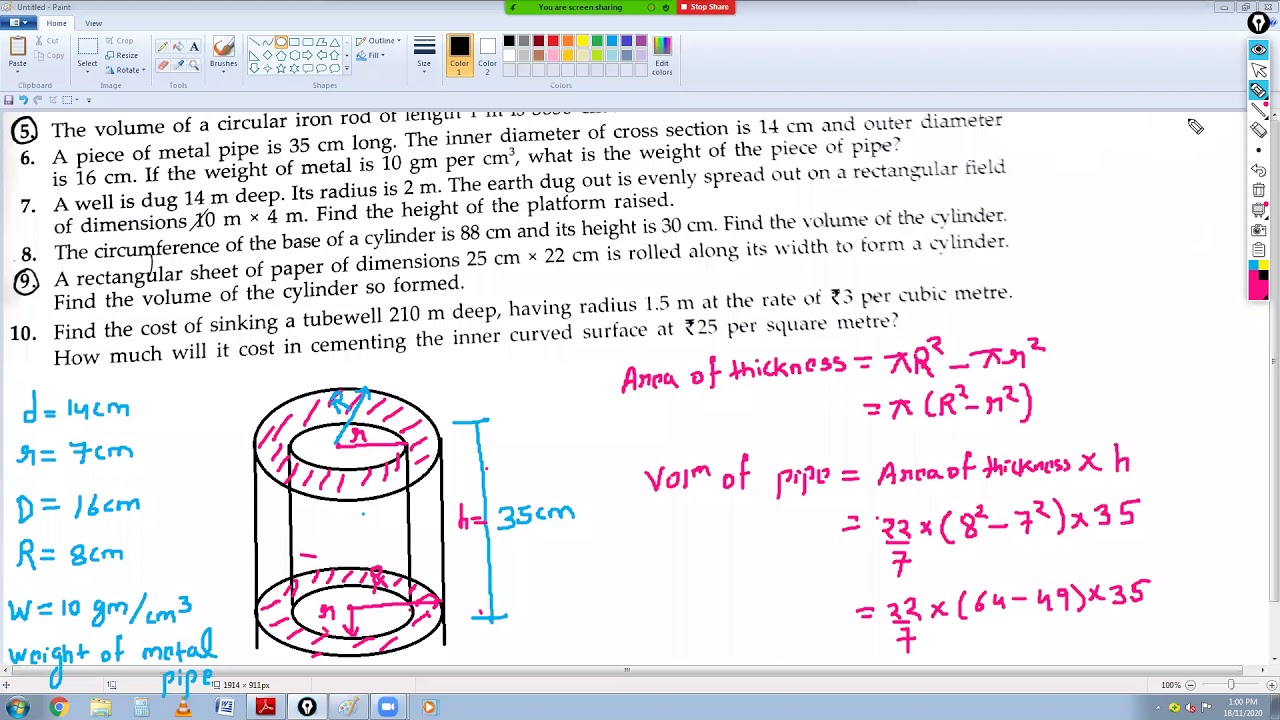 Untitled - Paint
You are screen sharing
Stop Share
Home
View
Cut
Copy
Paste
Clipboard
Select
Crop
Resize
Rotate
Image
Tools
Brushes
Shapes
Outline
Fill
Size
Color 1
Color 2
Colors
Edit colors
5. The volume of a circular iron rod of length 1 m is
6. A piece of metal pipe is 35 cm long. The inner diameter of cross section is 14 cm and outer diameter
is 16 cm. If the weight of metal is 10 gm per cm³, what is the weight of the piece of pipe?
7. A well is dug 14 m deep. Its radius is 2 m. The earth dug out is evenly spread out on a rectangular field
of dimensions 10 m × 4 m. Find the height of the platform raised.
8. The circumference of the base of a cylinder is 88 cm and its height is 30 cm. Find the volume of the cylinder.
9. A rectangular sheet of paper of dimensions 25 cm × 22 cm is rolled along its width to form a cylinder.
Find the volume of the cylinder so formed.
10. Find the cost of sinking a tubewell 210 m deep, having radius 1.5 m at the rate of ₹3 per cubic metre.
How much will it cost in cementing the inner curved surface at ₹25 per square metre?
d = 14cm
r = 7cm
D = 16cm
R = 8cm
W = 10 gm/cm³
weight of metal
pipe
R
r
h = 35cm
R
r
Area of thickness = πR² - πr²
= π (R² - r²)
Volm of pipe = Area of thickness × h
= 22/7 × (8² - 7²) × 35
= 22/7 × (64 - 49) × 35
1914 × 911px
100%
1:00 PM
18/11/2020